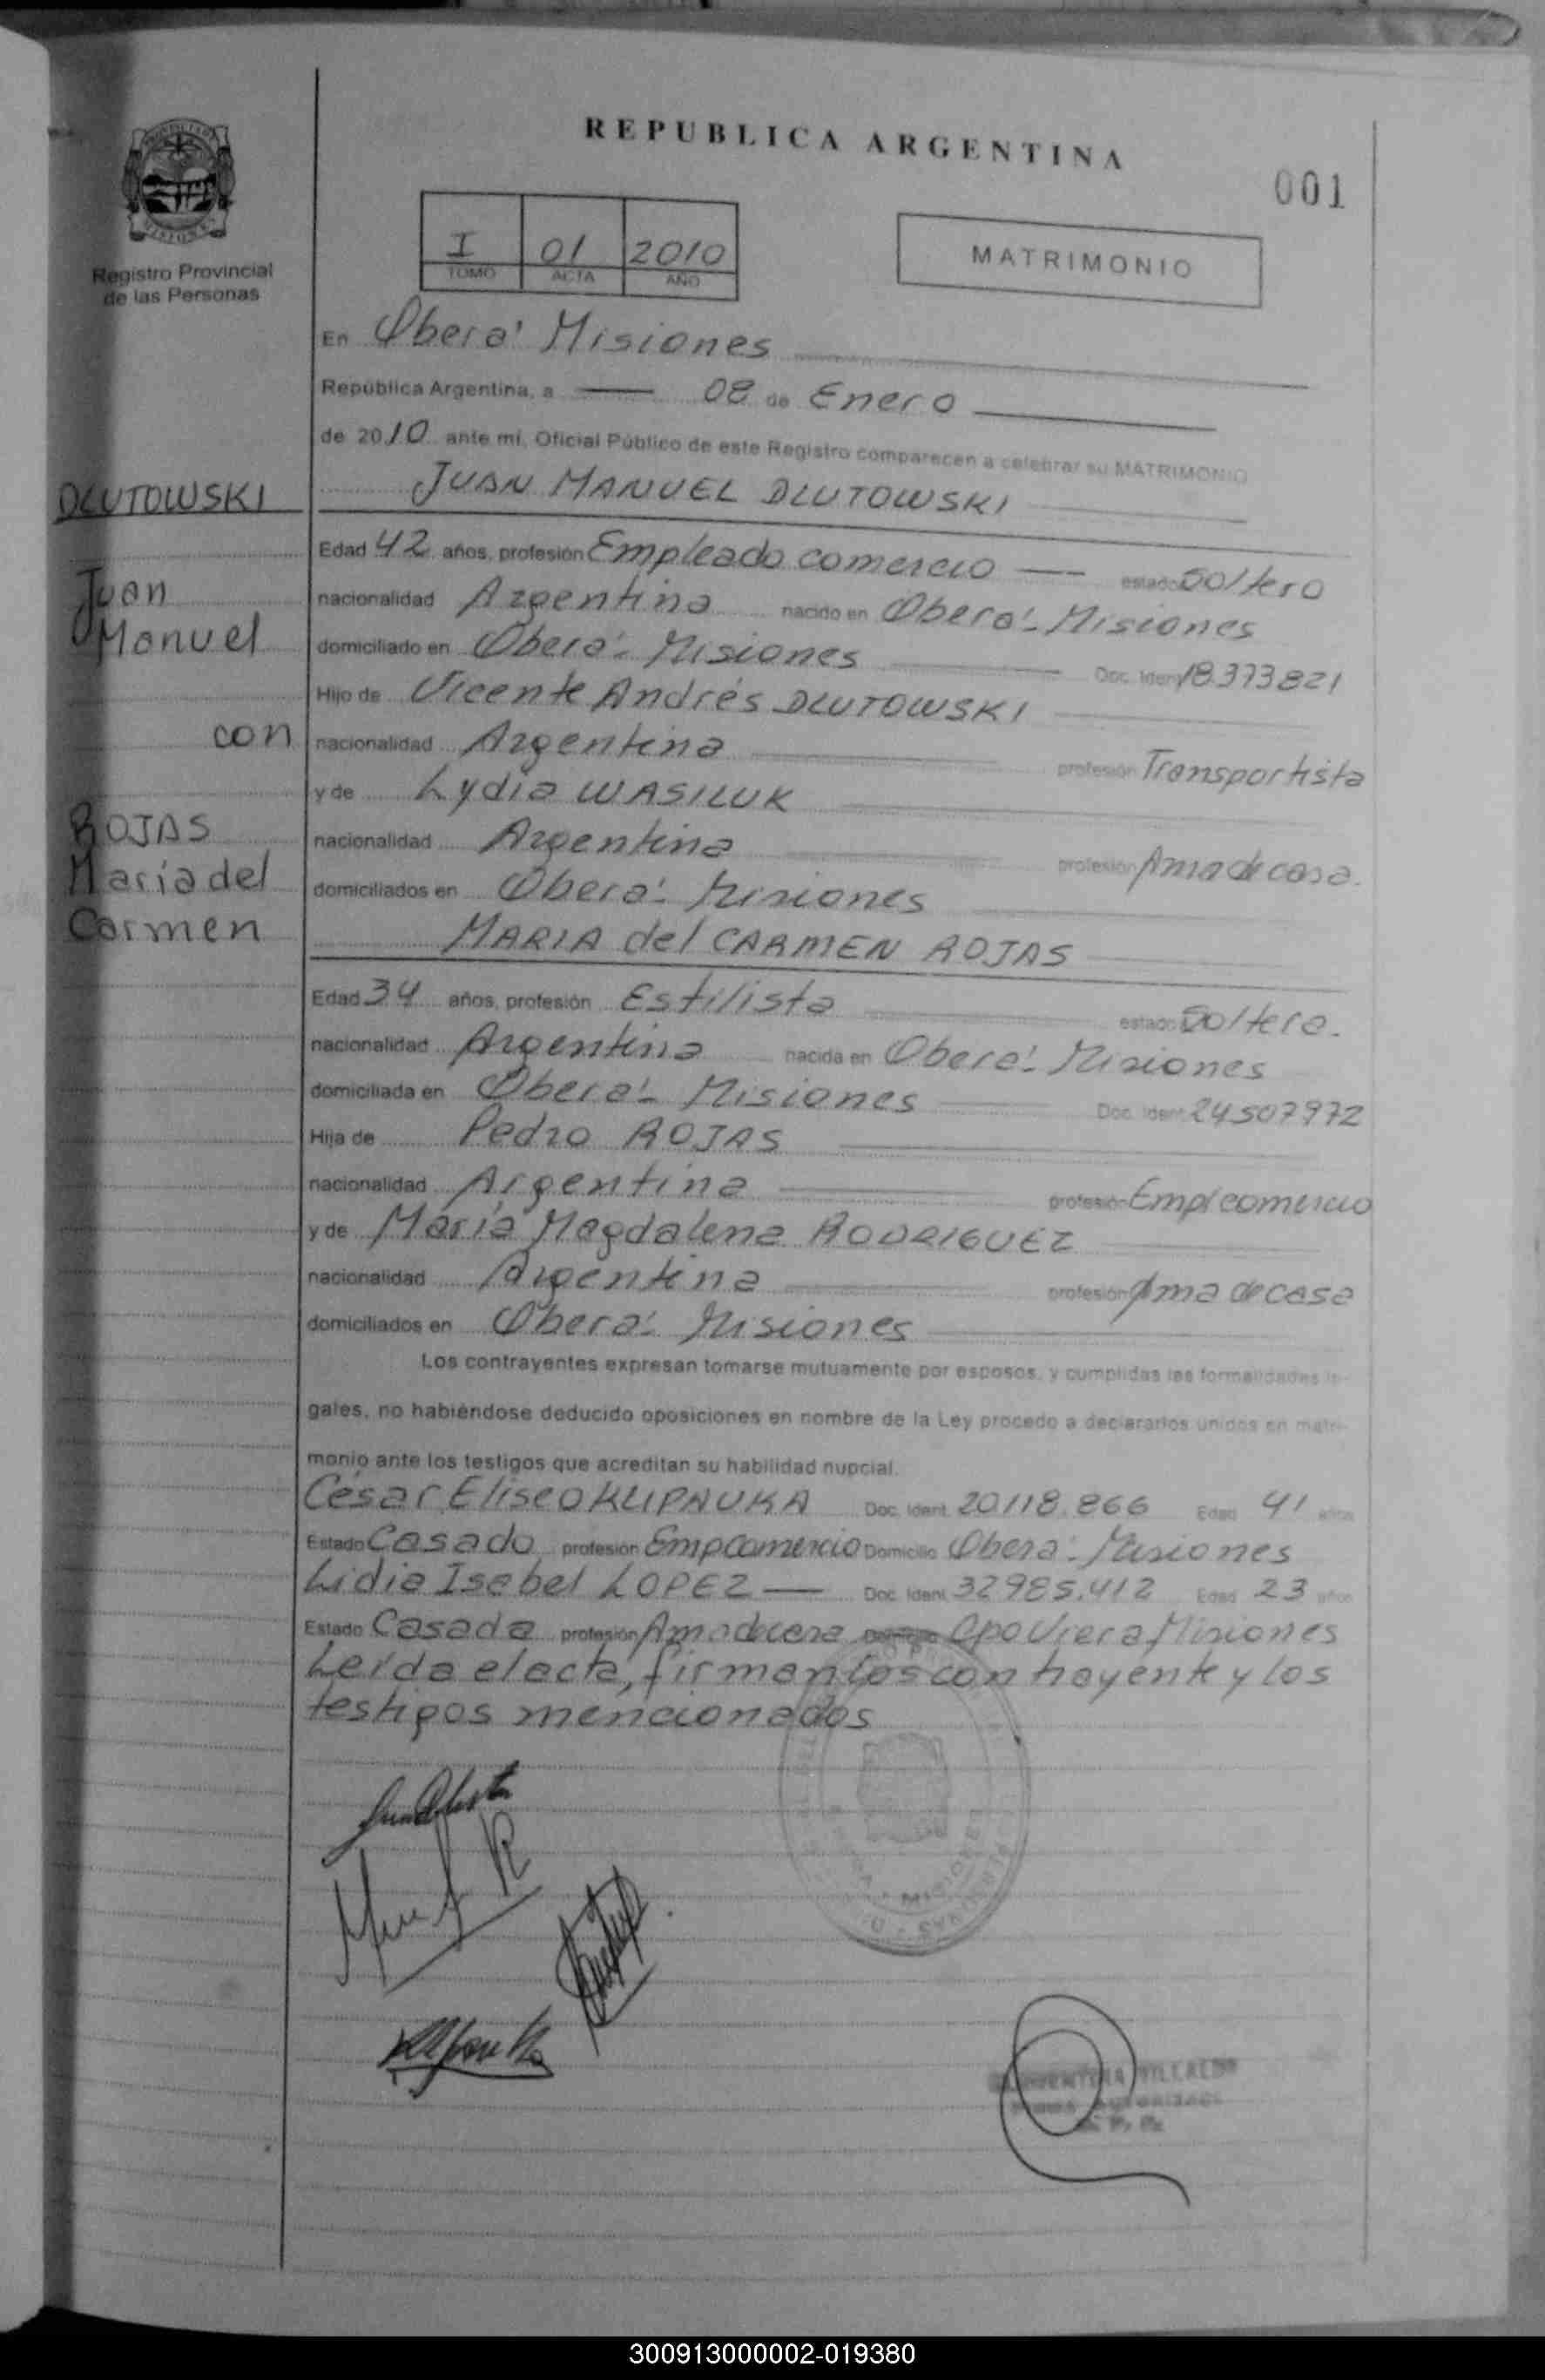 REPUBLICA ARGENTINA
001
Registro Provincial
de las Personas
I 01 2010
TOMO ACTA AÑO
MATRIMONIO
En Oberá Misiones
República Argentina, a 08 de Enero
de 2010 ante mí, Oficial Público de este Registro comparecen a celebrar su MATRIMONIO
DLUTOWSKI
Juan
Manuel
con
ROJAS
María del
Carmen
JUAN MANUEL DLUTOWSKI
Edad 42 años, profesión Empleado comercio estado Soltero
nacionalidad Argentina nacido en Oberá - Misiones
domiciliado en Oberá - Misiones Doc. Ident. 18.373821
Hijo de Vicente Andrés DLUTOWSKI
nacionalidad Argentina profesión Transportista
y de Lydia WASILUK
nacionalidad Argentina profesión Ama de casa.
domiciliados en Oberá - Misiones
MARIA del CARMEN ROJAS
Edad 34 años, profesión Estilista estado Soltera.
nacionalidad Argentina nacida en Oberá - Misiones
domiciliada en Oberá - Misiones Doc. Ident. 24507972
Hija de Pedro ROJAS
nacionalidad Argentina profesión Empl comercio
y de María Magdalena RODRIGUEZ
nacionalidad Argentina profesión Ama de casa
domiciliados en Oberá - Misiones
Los contrayentes expresan tomarse mutuamente por esposos, y cumplidas las formalidades le-
gales, no habiéndose deducido oposiciones en nombre de la Ley procedo a declararlos unidos en matri-
monio ante los testigos que acreditan su habilidad nupcial.
César Eliseo KLIPAUKA Doc. Ident. 20118.866 Edad 41 años
Estado Casado profesión Emp Comercio Domicilio Oberá - Misiones
Lidia Isabel LOPEZ Doc. Ident. 32985.412 Edad 23 años
Estado Casada profesión Ama de casa Domicilio Cpo Viera Misiones
Leída el acta, firman los contrayente y los
testigos mencionados
MISIONES
VILLALBA
300913000002-019380